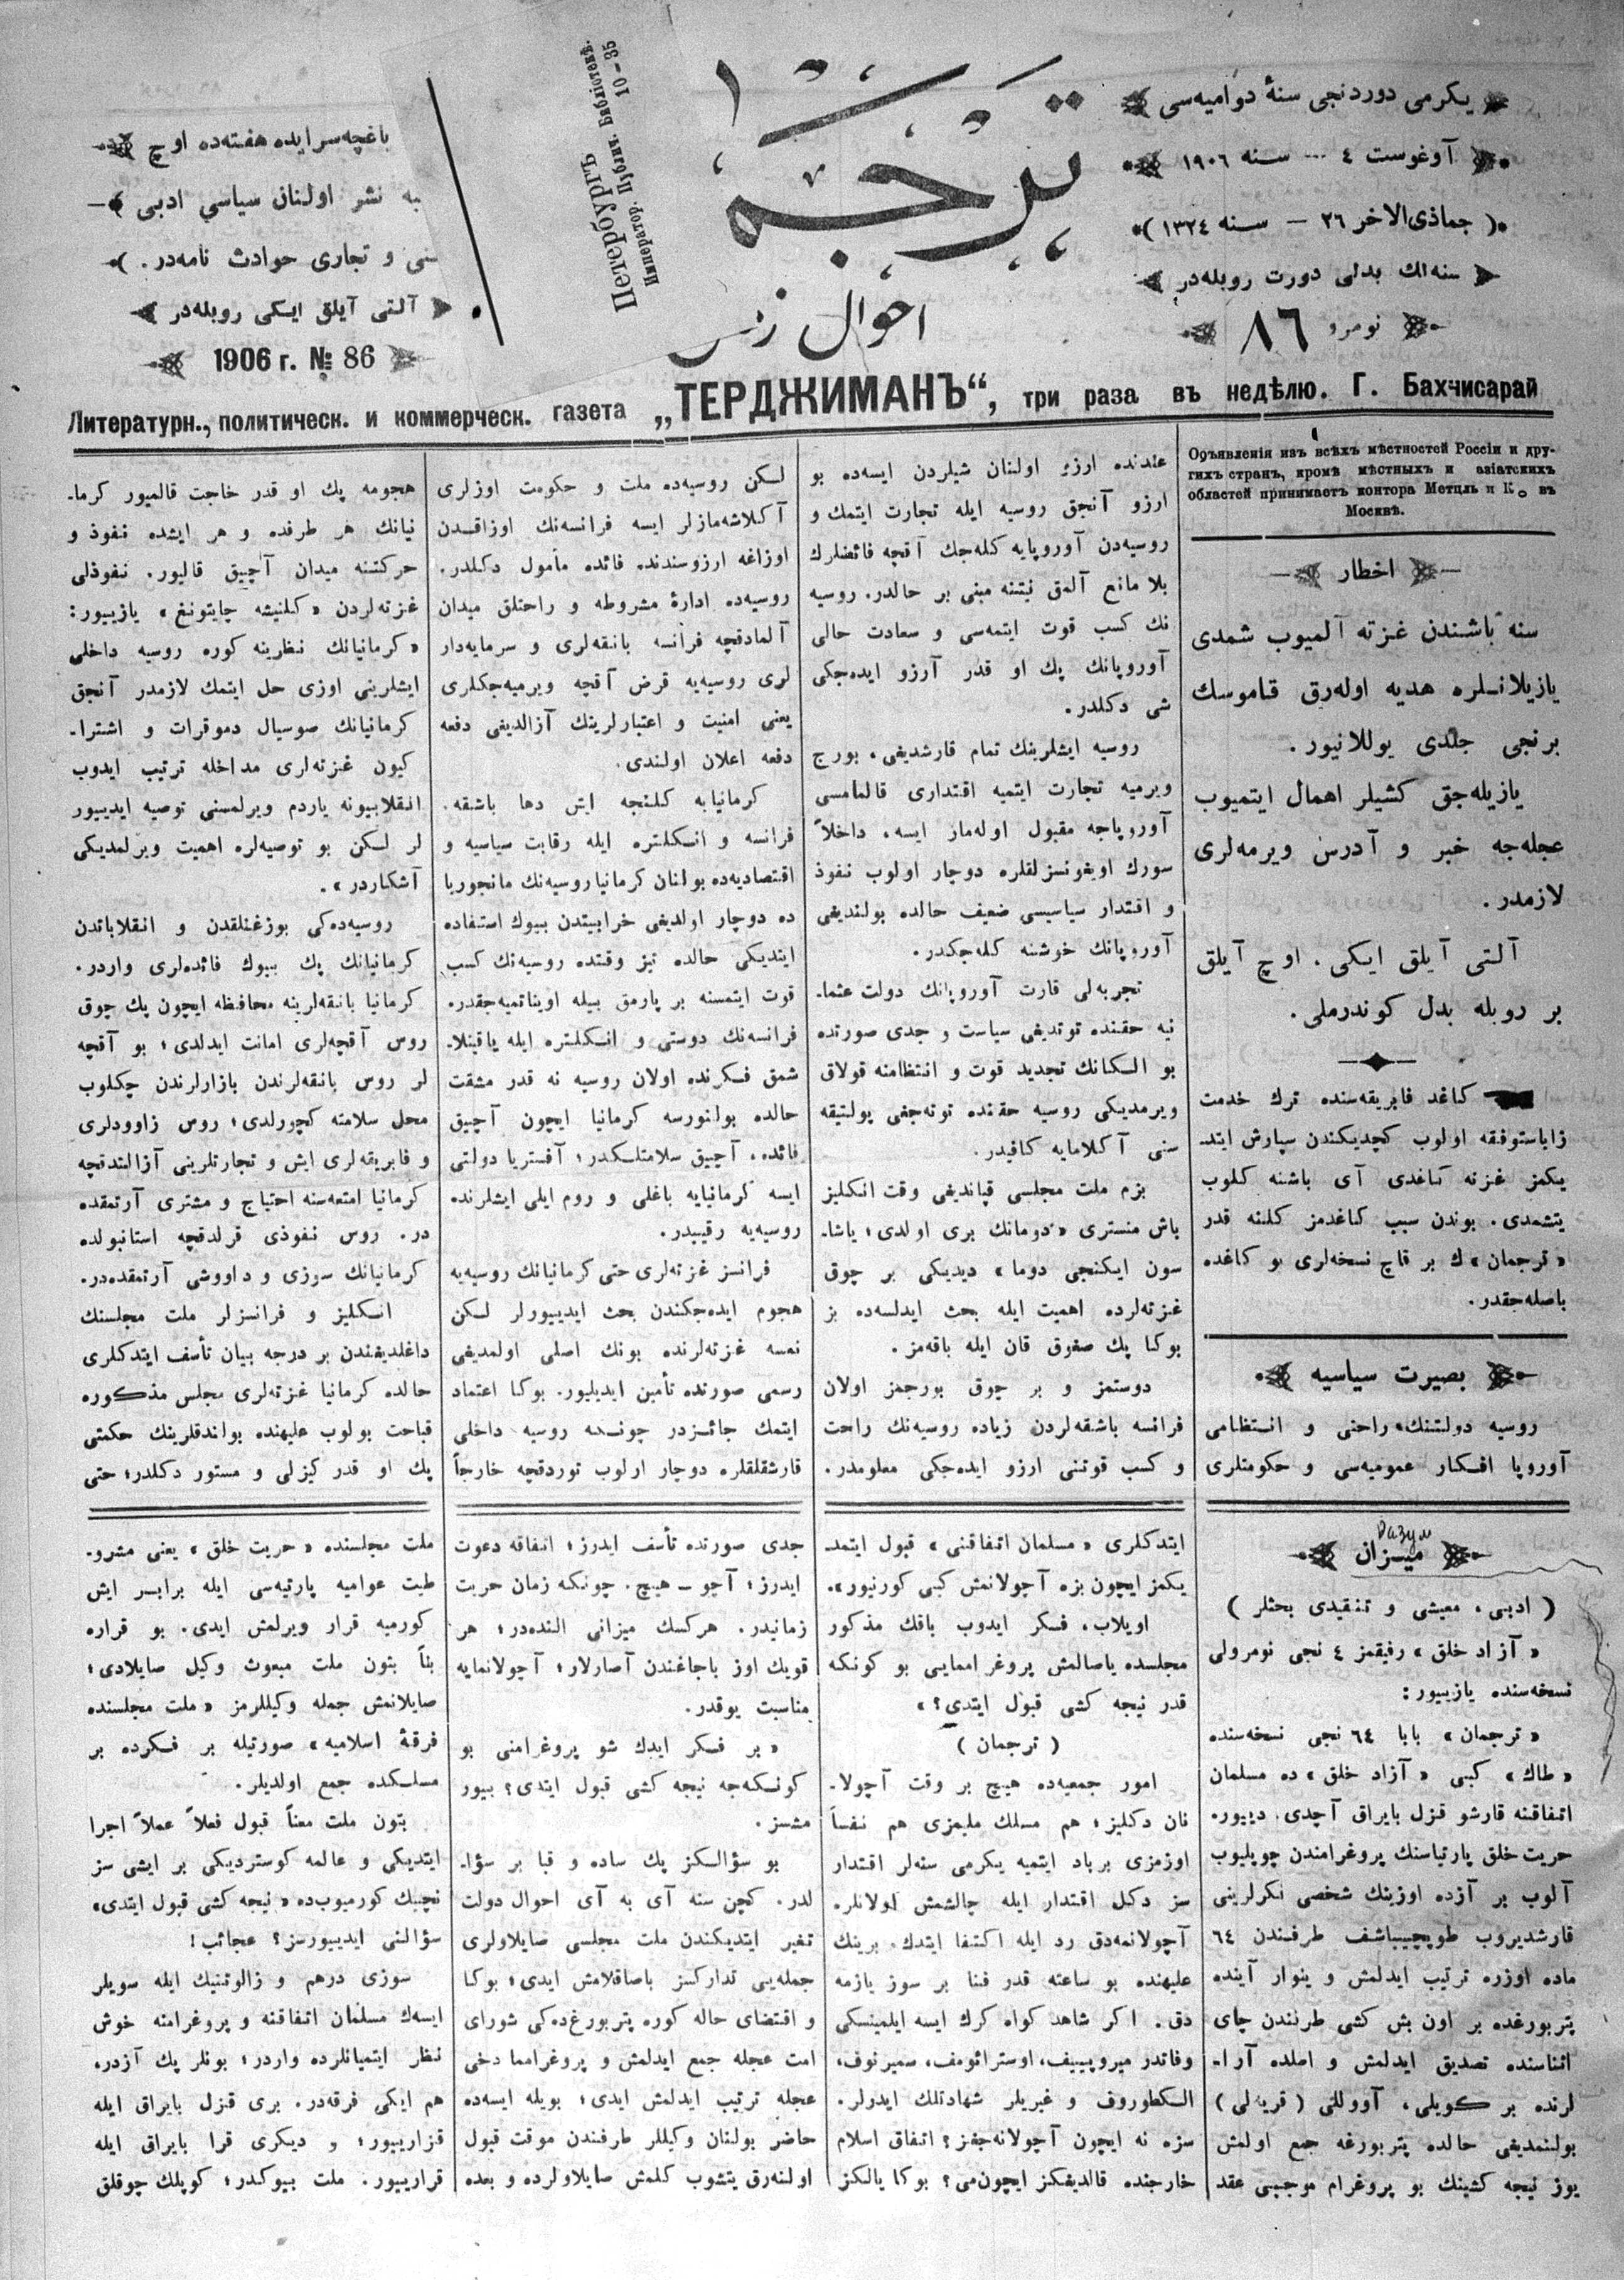 يكرمی دوردنجی سنۀ دواميه‌سی
آوغوست ٤ — سنه ١٩٠٦
(جماذی‌الاخر ٢٦ — سنه ١٣٢٤)
سنه‌لك بدلی دورت روبله‌در
نومرو ٨٦
ترجمان
احوال زمان
Петербургъ
Император. Публич. Библіотека.
10 – 35
باغچه‌سرايده هفته‌ده اوچ
نشر اولنان سياسي ادبی
و تجاری حوادث نامه‌در.
آلتی آيلق ايكی روبله‌در
1906 г. № 86
Литературн., политическ. и коммерческ. газета „ТЕРДЖИМАНЪ“, три раза въ недѣлю. Г. Бахчисарай
Объявленія изъ всѣхъ мѣстностей Россіи и дру-
гихъ странъ, кромѣ мѣстныхъ и азіатскихъ
областей принимаетъ контора Метцль и Ко въ
Москвѣ.
اخطار
سنه باشندن غزته آلميوب شمدی
يازيلانلره هديه اوله‌رق قاموسك
برنجی جلدی يوللانيور.
يازيله‌جق كشيلر اهمال ايتميوب
عجله‌جه خبر و آدرس ويرمه‌لری
لازمدر.
آلتی آيلق ايكی، اوچ آيلق
بر روبله بدل كوندرملی.
كاغد فابريقه‌سنده ترك خدمت
زاباستوفقه اولوب كچديكندن سپارش ايتد-
يكمز غزته كاغدی آی باشنه كلوب
يتشمدی. بوندن سبب كاغدمز كلنه قدر
«ترجمان»ك بر قاچ نسخه‌لری بو كاغده
باصله‌جقدر.
بصيرت سياسيه
روسيه دولتنك راحتی و انتظامی
آوروپا افكار عموميه‌سی و حكومتلری
عندنده ارزو اولنان شيلردن ايسه‌ده بو
ارزو آنجق روسيه ايله تجارت ايتمك و
روسيه‌دن آوروپايه كله‌جك آقچه فائضلرك
بلا مانع آلمق نيتنه مبنی بر حالدر. روسيه
نك كسب قوت ايتمه‌سی و سعادت حالی
آوروپانك پك او قدر آرزو ايده‌جكی
شی دكلدر.
روسيه ايشلرينك تمام قارشديغی، بورج
ويرميه تجارت ايتميه اقتداری قالمامسی
آوروپاجه مقبول اوله‌ماز ايسه، داخلاً
سورك اويغونسزلقلره دوچار اولوب نفوذ
و اقتدار سياسيسی ضعيف حالده بولنديغی
آوروپانك خوشنه كله‌جكدر.
تجربه‌لی قارت آوروپانك دولت عثما-
نيه حقنده توتديغی سياست و جدی صورتده
بو الكانك تجديد قوت و انتظامنه قولاق
ويرمديكی روسيه حقنده توته‌جغی پولتيقه
سنی آكلامايه كافيدر.
بزم ملت مجلسی قپانديغی وقت انكليز
باش منستری «دومانك بری اولدی؛ ياشا-
سون ايكنجی دوما» ديديكی بر چوق
غزته‌لرده اهميت ايله بحث ايدلسه‌ده بز
بوكا پك صغوق قان ايله باقه‌مز.
دوستمز و بر چوق بورجمز اولان
فرانسه باشقه‌لردن زياده روسيه‌نك راحت
و كسب قوتنی ارزو ايده‌جكی معلومدر.
لكن روسيه‌ده ملت و حكومت اوزلری
آكلاشه‌مازلر ايسه فرانسه‌نك اوزاقدن
اوزاغه ارزوسندن فائده مأمول دكلدر.
روسيه‌ده ادارۀ مشروطه و راحتلق ميدان
آلمادقچه فرانسه بانقه‌لری و سرمايه‌دار
لری روسيه‌يه قرض آقچه ويرميه‌جكلری
يعنی امنيت و اعتبارلرينك آزالديغی دفعه
دفعه اعلان اولندی.
كرمانيايه كلنجه ايش دها باشقه.
فرانسه و انكلتره ايله رقابت سياسيه و
اقتصاديه‌ده بولنان كرمانيا روسيه‌نك مانجوريا
ده دوچار اولديغی خرابيتدن بيوك استفاده
ايتديكی حالده تيز وقتده روسيه‌نك كسب
قوت ايتمسنه بر پارمق بيله اويناتميه‌جقدر.
فرانسه‌نك دوستی و انكلتره ايله ياقينلا-
شمق فكرنده اولان روسيه نه قدر مشقت
حالده بولنورسه كرمانيا ايچون آچيق
فائده، آچيق سلامتلكدر؛ آفستريا دولتی
ايسه كرمانيايه باغلی و روم ايلی ايشلرنده
روسيه‌يه رقيبدر.
فرانسز غزته‌لری حتی كرمانيانك روسيه‌يه
هجوم ايده‌جكندن بحث ايدييورلر لكن
نمسه غزته‌لرنده بونك اصلی اولمديغی
رسمی صورتده تأمين ايديليور. بوكا اعتماد
ايتمك جائزدر چونكه روسيه داخلی
قارشقلقلره دوچار اولوب توردقچه خارجاً
هجومه پك او قدر حاجت قالميور كرما-
نيانك هر طرفده و هر ايشده نفوذ و
حركتنه ميدان آچيق قاليور. نفوذلی
غزته‌لردن «كلنيشه چايتونغ» يازييور:
«كرمانيانك نظرينه كوره روسيه داخلی
ايشلرينی اوزی حل ايتمك لازمدر آنجق
كرمانيانك صوسيال دموقرات و اشترا-
كيون غزته‌لری مداخله ترتيب ايدوب
انقلابيونه ياردم ويرلمسنی توصيه ايدييور
لر لكن بو توصيه‌لره اهميت ويرلمديكی
آشكاردر».
روسيه‌ده‌كی بوزغنلقدن و انقلاباتدن
كرمانيانك پك بيوك فائده‌لری واردر.
كرمانيا بانقه‌لرينه محافظه ايچون پك چوق
روس آقچه‌لری امانت ايدلدی؛ بو آقچه
لر روس بانقه‌لرندن بازارلرندن چكلوب
محل سلامته كچورلدی؛ روس زاوودلری
و فابريقه‌لری ايش و تجارتلرينی آزالتدقچه
كرمانيا امتعه‌سنه احتياج و مشتری آرتمقده
در. روس نفوذی قرلدقچه استانبولده
كرمانيانك سوزی و داووشی آرتمقده‌در.
انكليز و فرانسزلر ملت مجلسنك
داغلديغندن بر درجه بيان تأسف ايتدكلری
حالده كرمانيا غزته‌لری مجلس مذكوره
قباحت بولوب عليهنده بولندقلرينك حكمتی
پك او قدر كيزلی و مستور دكلدر؛ حتی
ميزان
(ادبی، معيشی و تنقيدی بحثلر)
«آزاد خلق» رفيقمز ٤ نجی نومرولی
نسخه‌سنده يازييور:
«ترجمان» بابا ٦٤ نجی نسخه‌سنده
«طاك» كبی «آزاد خلق» ده مسلمان
اتفاقنه قارشو قزل بايراق آچدی، دييور.
حريت خلق پارتياسنك پروغرامندن چوپليوب
آلوب بر آزده اوزينك شخصی فكرلرينی
قارشديروب طوپچيباشف طرفندن ٦٤
ماده اوزره ترتيب ايدلمش و ينوار آينده
پتربورغده بر اون بش كشی طرفندن چای
اثناسنده تصديق ايدلمش و اصلده آرا-
لرنده بر كويلی، آووللی (قريه‌لی)
بولنمديغی حالده پتربورغه جمع اولمش
يوز نيجه كشينك بو پروغرام موجبی عقد
ايتدكلری «مسلمان اتفاقنی» قبول ايتمد-
يكمز ايچون بزه آچولانمش كبی كورنيور».
اويلاب، فكر ايدوب باقك مذكور
مجلسده ياصالمش پروغراممايی بو كونكه
قدر نيجه كشی قبول ايتدی؟»
(ترجمان)
امور جمعيه‌ده هيچ بر وقت آچولا-
نان دكليز؛ هم مسلك مليمزی هم نفساً
اوزمزی برباد ايتميه يكرمی سنه‌لر اقتدار
سز دكل اقتدار ايله چالشمش اولانلر.
آچولانمه‌دق رد ايله اكتفا ايتدك. برينك
عليهنده بو ساعته قدر فنا بر سوز يازمه
دق. اكر شاهد كواه كرك ايسه ايلمينسكی
وفاتدر ميروپييف، اوستراثومف، سميرنوف،
الكطوروف و غيريلر شهادتلك ايدرلر.
سزه نه ايچون آچولانه‌جغز؟ اتفاق اسلام
خارجنده قالديغكز ايچون‌می؟ بوكا يالكز
جدی صورتده تأسف ايدرز؛ اتفاقه دعوت
ايدرز؛ آچو — هيچ. چونكه زمان حريت
زمانيدر. هركسك ميزانی النده‌در؛ هر
قويك اوز باجاغندن آصارلار؛ آچولانمايه
مناسبت يوقدر.
«بر فكر ايدك شو پروغرامنی بو
كونكه‌جه نيجه كشی قبول ايتدی؟ بيور
مشسز.
بو سؤالكز پك ساده و قبا بر سؤا-
لدر. كچن سنه آی به آی احوال دولت
تغير ايتديكندن ملت مجلسی صايلاولری
جمله‌يی تداركسز باصاقلامش ايدی؛ بوكا
و اقتضای حاله كوره پتربورغ‌ده‌كی شورای
امت عجله جمع ايدلمش و پروغرامما دخی
عجله ترتيب ايدلمش ايدی؛ بويله ايسه‌ده
حاضر بولنان وكيللر طرفندن موقت قبول
اولنه‌رق يتشوب كلمش صايلاولرده و بعده
ملت مجلسنده «حريت خلق» يعنی مشرو-
طيت عواميه پارتيه‌سی ايله برابر ايش
كورميه قرار ويرلمش ايدی. بو قراره
بناً بتون ملت مبعوث وكيل صايلادی؛
صايلانمش جمله وكيللرمز «ملت مجلسنده
فرقۀ اسلاميه» صورتيله بر فكرده بر
مسلكده جمع اولديلر.
بتون ملت معناً قبول فعلاً عملاً اجرا
ايتديكی و عالمه كوسترديكی بر ايشی سز
نچيك كورميوب‌ده «نيجه كشی قبول ايتدی»
سؤالنی ايدييورسز؟ عجائب!
سوزی درهم و زالوتنيك ايله سويلر
ايسه‌ك مسلمان اتفاقنه و پروغرامنه خوش
نظر ايتميانلرده واردر؛ بونلر پك آزدر،
هم ايكی فرقه‌در. بری قزل بايراق ايله
قزارييور؛ و ديكری قرا بايراق ايله
قرارييور. ملت بيوكدر؛ كوپلك چوقلق